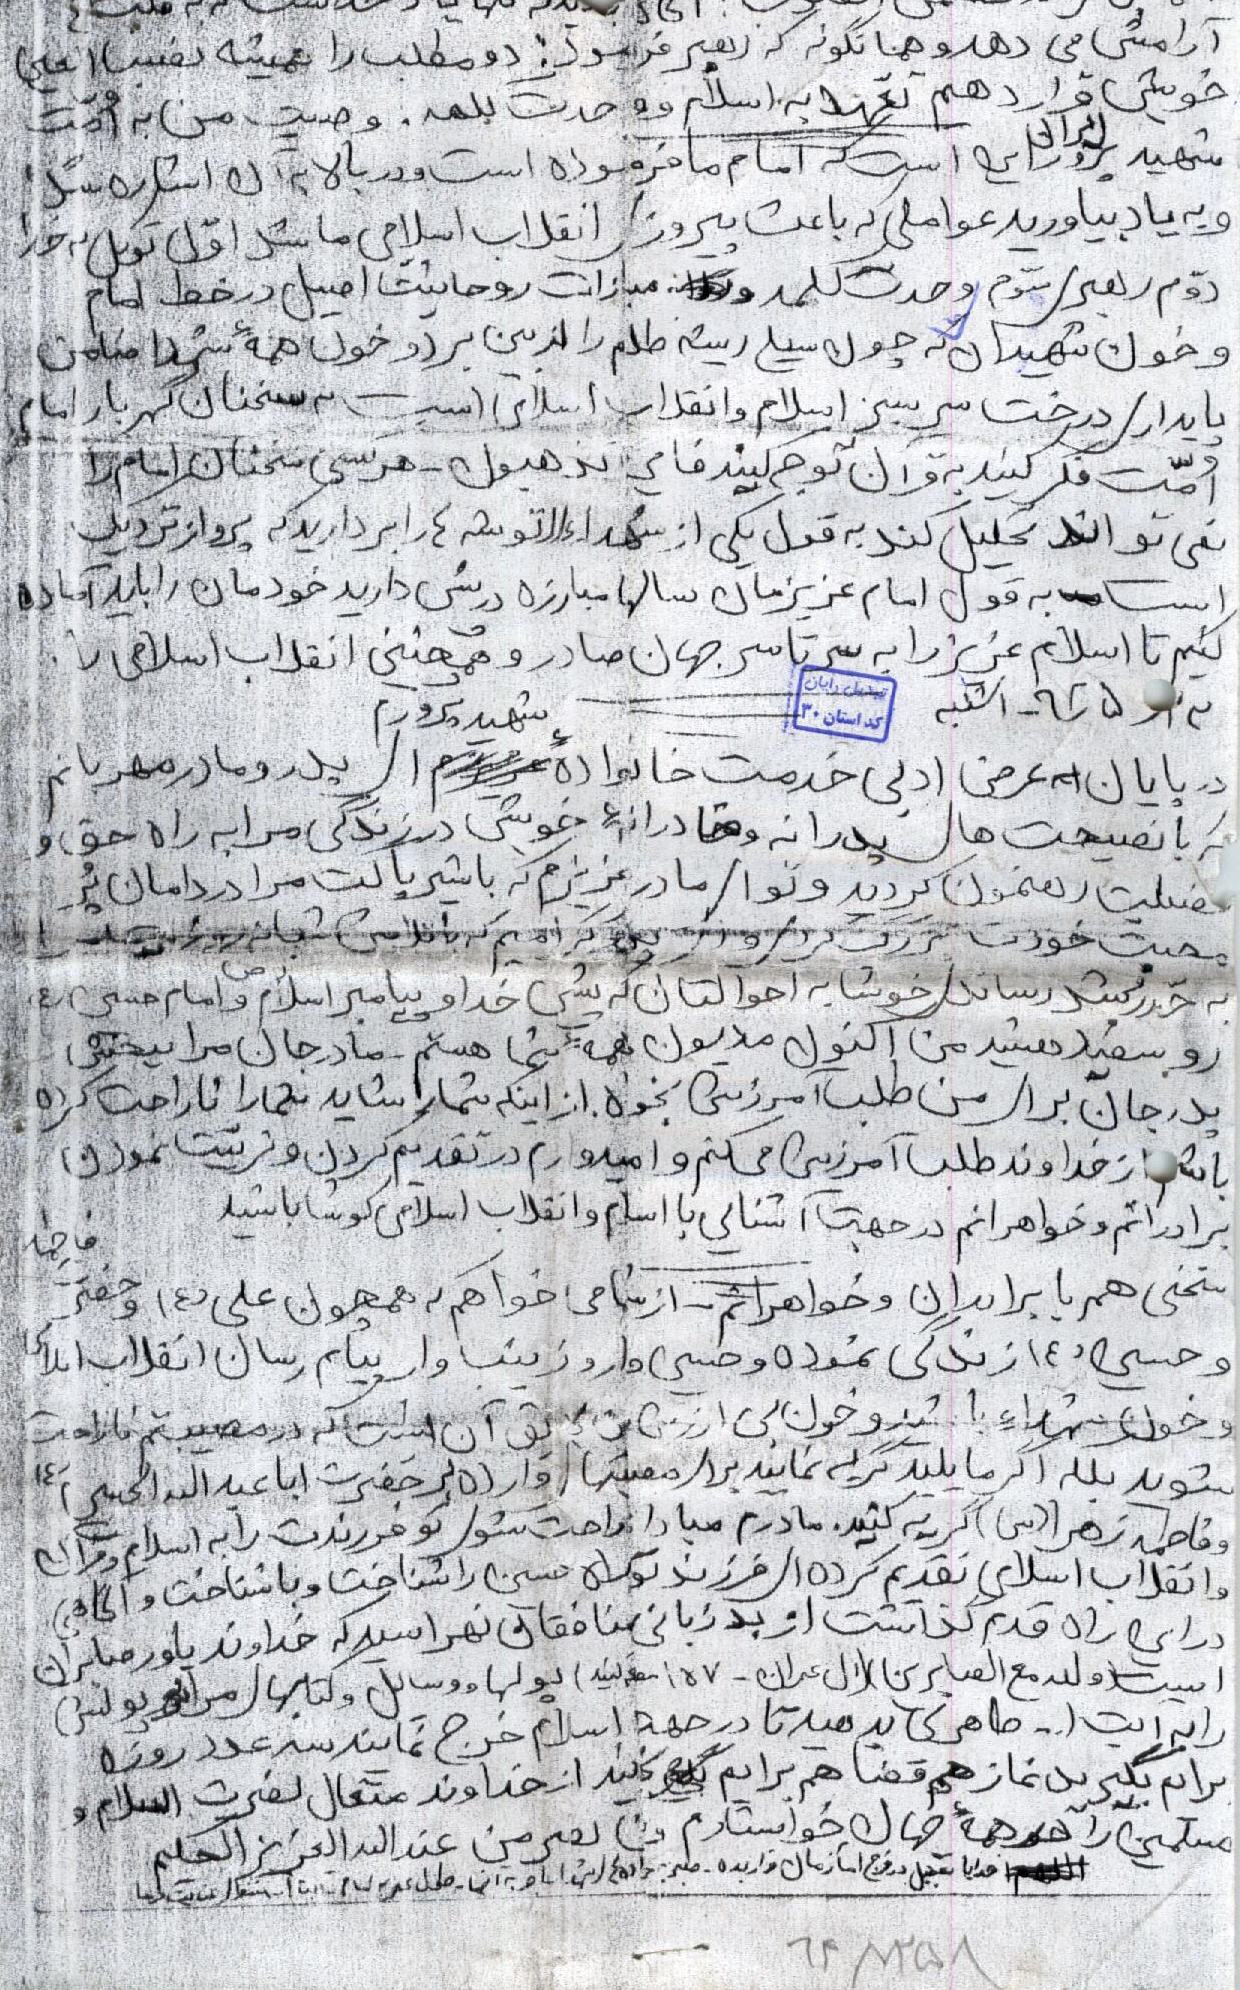 آرامش می دهد و همانگونه که رهبر فرمود: دو مطلب را همیشه نصب العین
خویش قرار دهیم تعهد به اسلام و وحدت کلمه. وصیت من به امّت
شهید پرور ایران این است که امام ما فرموده است و در بالا به آن اشاره شد
و به یاد بیاورید عواملی که باعث پیروزی انقلاب اسلامی ما شد اوّل توکل به خدا
دوّم رهبری سوّم وحدت کلمه و مبارزات روحانیت اصیل در خط امام
و خون شهیدان که چون سیل ریشه ظلم را از بین برد و خون همۀ شهدا ضامن
پایداری درخت سرسبز اسلام و انقلاب اسلامی است به سخنان گهربار امام
امّت فکر کنید به قرآن توجه کنید فاین تذهبون - هرکسی سخنان امام را
نمی تواند تحلیل کند به قول یکی از شهداء توشه را بردارید که پرواز نزدیک
است به قول امام عزیزمان سالها مبارزه در پیش دارید خودمان را باید آماده
کنیم تا اسلام عزیز را به سرتاسر جهان صادر و همچنین انقلاب اسلامی را.
تبدیل رایان
کد استان ۳۰
شهید پرورم
در پایان عرض ادبی خدمت خانوادۀ ای پدر و مادر مهربانم
که با نصیحت های پدرانه و مادرانۀ خویش در زندگی مرا به راه حق و
فضیلت رهنمون کردید و تو ای مادر عزیزم که با شیر پاکت مرا در دامان پُر
محبت خودت بزرگ کردی و
به حدّ رشد رساندی خوشا به احوالتان که پیش خدا و پیامبر اسلام (ص) و امام حسین (ع)
رو سفید هستید من اکنون مدیون همۀ شما هستم - مادر جان مرا ببخش
پدر جان برای من طلب آمرزش بخواه. از اینکه شما را شاید شما را ناراحت کرده
باشم از خداوند طلب آمرزش می کنم و امیدوارم در تقدیم کردن و تربیت نمودن
برادرانم و خواهرانم در جهت آشنایی با اسلام و انقلاب اسلامی کوشا باشید
سخنی هم با برادران و خواهرانم - از شما می خواهم که همچون علی (ع) و حضرت فاطمه
و حسین (ع) زندگی نموده و حسین وار و زینب وار پیام رسان انقلاب
و خون شهداء باشید و خون بی ارزش من لایق آن نیست که در مصیبتم ناراحت
شوید بلکه اگر مایلید گریه نمایید برای مصیبتهای وارده بر حضرت ابا عبد الله الحسین (ع)
و فاطمه زهرا (س) گریه کنید. مادرم مبادا ناراحت شوی تو فرزندت را به اسلام و قرآن
و انقلاب اسلامی تقدیم کرده ای فرزند تو راه حسین را شناخت و با شناخت و آگاهی
در این راه قدم گذاشت از بد زبانی منافقان نهراسید که خداوند یاور صابران
است پولها و وسایل و کتابهای مرا
را به آیت ا... طاهری بدهید تا در جهت اسلام خرج نمایند سه عدد روزه
برایم بگیرید نماز هم قضا هم برایم کنید از خداوند متعال نصرت اسلام و
مسلمین را در همۀ جهان خواستارم و ما النصر الا من عند الله العزیز الحکیم